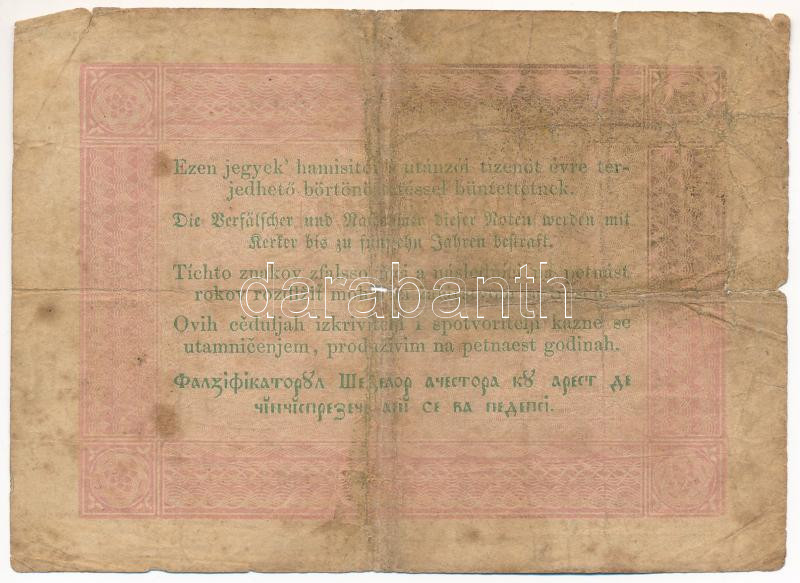 Ezen jegyek' hamisitói 's utánzói tizenöt évre ter-
jedhető börtönöztetéssel büntettetnek.
Die Verfälscher und Nachahmer dieser Noten werden mit
Kerker bis zu fünfzehn Jahren bestraft.
Tíchto znakov zfalssovači a následníci na petnást
rokov
Ovih céduljah izkriviteli i spotvoritelji kazne se
utamničenjem, produživim na petnaest godinah.
darabanth
Фалзіфікаторꙋл Шедꙋлор ачестора кꙋ арест де
чінчіспрезече ані се ва педепсі.